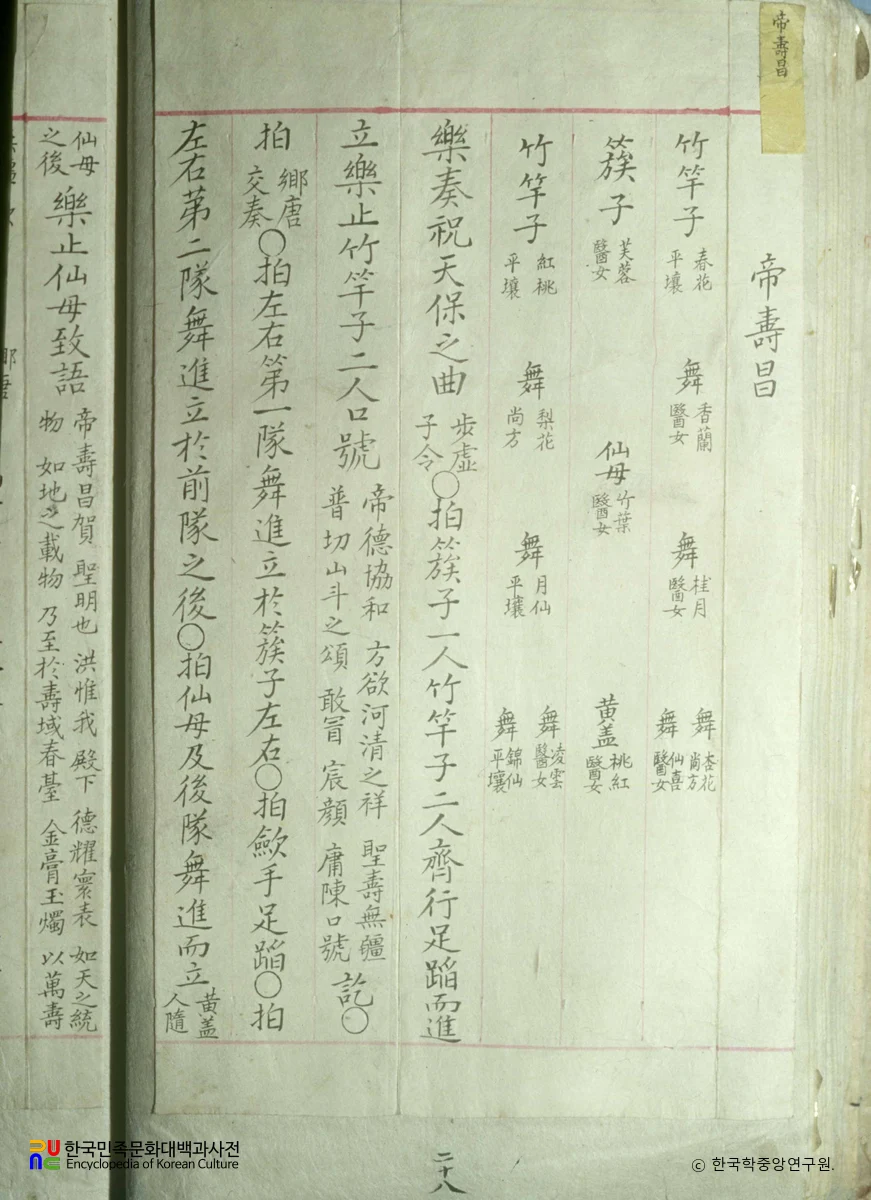 帝壽昌
帝壽昌
竹竿子 春花 平壤 舞 香蘭 醫女 舞 桂月 醫女 舞 杏花 尙方 舞 仙喜 醫女
簇子 芙蓉 醫女 仙母 竹葉 醫女 黃盖 桃紅 醫女
竹竿子 紅桃 平壤 舞 梨花 尚方 舞 月仙 平壤 舞 凌雲 醫女 舞 錦仙 平壤
樂奏祝天保之曲 步虛子令 ○拍簇子一人竹竿子二人齊行足蹈而進
立樂止竹竿子二人口號 帝德協和 方欲河清之祥 聖壽無疆 普切山斗之頌 敢冒 宸顔 庸陳口號 訖○
拍 鄉唐交奏 ○拍左右第一隊舞進立於簇子左右○拍歛手足蹈○拍
左右苐二隊舞進立於前隊之後○拍仙母及後隊舞進而立 黃盖人隨
仙母之後 樂止仙母致語 帝壽昌賀 聖明也 洪惟我 殿下 德耀寰表 如天之統物 如地之載物 乃至於壽域春臺 金膏玉燭 以萬壽
鄉唐
二十八
한국민족문화대백과사전
Encyclopedia of Korean Culture
© 한국학중앙연구원.